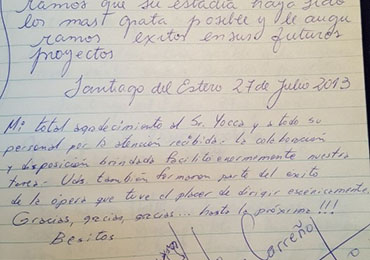 ramos que su estadía haya sido
lo mas grata posible y le augu
ramos exitos en sus futuros
proyectos
Santiago del Estero 27 de Julio 2013
Mi total agradecimiento al Sr. Yocca y a todo su
personal por la atención recibida. la colaboración
y disposición brindada facilitó enormemente nuestra
tarea. Uds también formaron parte del exito
de la ópera que tuve el placer de dirigir escénicamente.
Gracias, gracias, gracias... hasta la próxima!!!
Besitos
Carreño